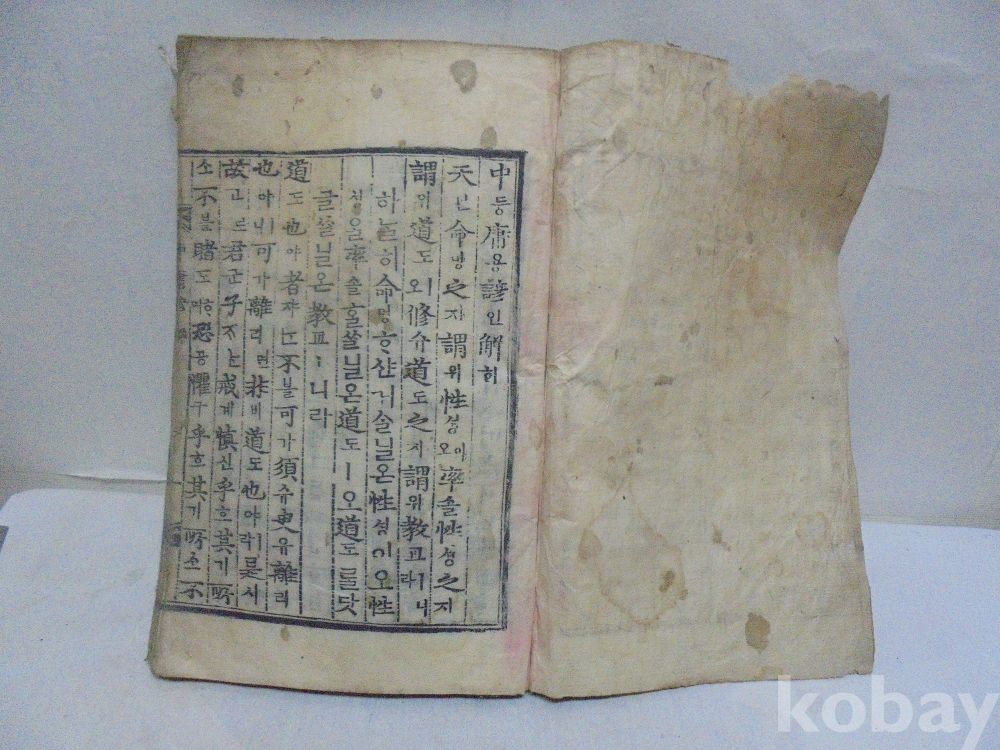 中듕庸용諺언解ᄒᆡ
天텬命명之지謂위性셩이오率솔性셩之지
謂위道도ㅣ오修슈道도之지謂위敎교ㅣ니라
하ᄂᆞᆯ히命명ᄒᆞ샨거ᄉᆞᆯ닐온性셩이오性
셩을率솔ᄒᆞᆯᄊᆞᆯ닐온道도ㅣ오道도ᄅᆞᆯ닷
글ᄊᆞᆯ닐온敎교ㅣ니라
道도也야者쟈ᄂᆞᆫ不블可가須슈臾유離리
也야ㅣ니可가離리면非비道도也야ㅣ라是시
故고로君군子ᄌᆞᄂᆞᆫ戒계愼신乎호其기所
소不블睹도ᄒᆞ며恐공懼구乎호其기所소不
kobay